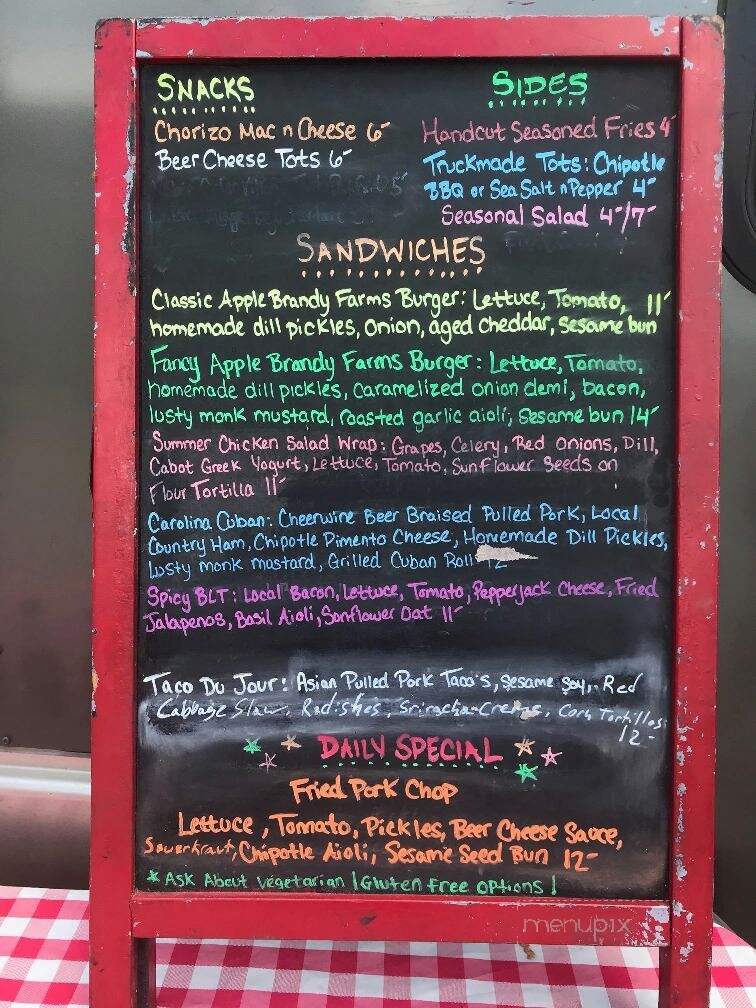 SNACKS
SIDES
Chorizo Mac n Cheese 6-
Beer Cheese Tots 6-
Handcut Seasoned Fries 4-
Truckmade Tots: Chipotle
BBQ or Sea Salt n Pepper 4-
Seasonal Salad 4-/7-
SANDWICHES
Classic Apple Brandy Farms Burger: Lettuce, Tomato, 11-
homemade dill pickles, onion, aged cheddar, sesame bun
Fancy Apple Brandy Farms Burger: Lettuce, Tomato,
homemade dill pickles, caramelized onion demi, bacon,
lusty monk mustard, roasted garlic aioli, sesame bun 14-
Summer Chicken Salad Wrap: Grapes, Celery, Red Onions, Dill,
Cabot Greek Yogurt, Lettuce, Tomato, Sunflower Seeds on
Flour Tortilla 11-
Carolina Cuban: Cheerwine Beer Braised Pulled Pork, Local
Country Ham, Chipotle Pimento Cheese, Homemade Dill Pickles,
Lusty monk mustard, Grilled Cuban Roll 12-
Spicy BLT: Local Bacon, Lettuce, Tomato, Pepperjack Cheese, Fried
Jalapenos, Basil Aioli, Sunflower Oat 11-
Taco Du Jour: Asian Pulled Pork Taco's, Sesame Soy, Red
Cabbage Slaw, Radishes, Sriracha Creme, Corn Tortillas
12-
DAILY SPECIAL
Fried Pork Chop
Lettuce, Tomato, Pickles, Beer Cheese Sauce,
Sauerkraut, Chipotle Aioli, Sesame Seed Bun 12-
*Ask About Vegetarian | Gluten Free Options!
menupix